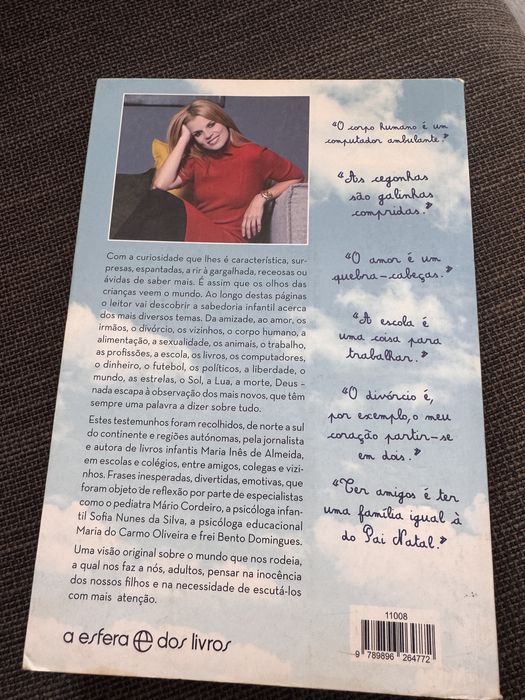 Com a curiosidade que lhes é característica, sur-
presas, espantadas, a rir à gargalhada, receosas ou
ávidas de saber mais. É assim que os olhos das
crianças veem o mundo. Ao longo destas páginas
o leitor vai descobrir a sabedoria infantil acerca
dos mais diversos temas. Da amizade, ao amor, os
irmãos, o divórcio, os vizinhos, o corpo humano, a
alimentação, a sexualidade, os animais, o trabalho,
as profissões, a escola, os livros, os computadores,
o dinheiro, o futebol, os políticos, a liberdade, o
mundo, as estrelas, o Sol, a Lua, a morte, Deus –
nada escapa à observação dos mais novos, que têm
sempre uma palavra a dizer sobre tudo.
Estes testemunhos foram recolhidos, de norte a sul
do continente e regiões autónomas, pela jornalista
e autora de livros infantis Maria Inês de Almeida,
em escolas e colégios, entre amigos, colegas e vizi-
nhos. Frases inesperadas, divertidas, emotivas, que
foram objeto de reflexão por parte de especialistas
como o pediatra Mário Cordeiro, a psicóloga infan-
til Sofia Nunes da Silva, a psicóloga educacional
Maria do Carmo Oliveira e frei Bento Domingues.
Uma visão original sobre o mundo que nos rodeia,
a qual nos faz a nós, adultos, pensar na inocência
dos nossos filhos e na necessidade de escutá-los
com mais atenção.
a esfera e dos livros
"O corpo humano é um
computador ambulante."
"As cegonhas
são galinhas
compridas."
"O amor é um
quebra-cabeças."
"A escola é
uma coisa para
trabalhar."
"O divórcio é,
por exemplo, o meu
coração partir-se
em dois."
"Ter amigos é ter
uma família igual à
do Pai Natal."
11008
9 789896 264772